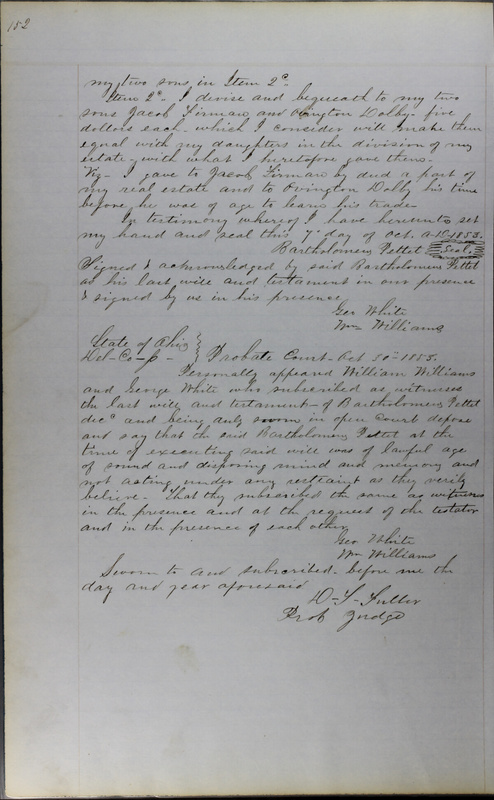 152
my two sons in Item 2ᵈ-
Item 2ᵈ- I devise and bequeath to my two
sons Jacob Firman and Ovington Dolby- five
dollars each- which I consider will make them
equal with my daughters in the division of my
estate, with what I heretofore gave them-
Viz- I gave to Jacob Firman by deed a part of
my real estate and to Ovington Dolby his time
before he was of age to learn his trade
In testimony whereof I have hereunto set
my hand and seal this 7ᵗ day of Oct. A.D. 1853.
Bartholomew Pettet Seal
Signed & acknowledged by said Bartholomew Pettet
as his last will and testament in our presence
& signed by us in his presence
Geo White
Wm Williams
State of Ohio
Del- Co- - } Probate Court- Oct 30ᵗʰ 1855.
Personally appeared William Williams
and George White who subscribed as witnesses
the last will and testament- of Bartholomew Pettet
decᵈ and being duly sworn in open Court depose
and say that the said Bartholomew Pettet at the
time of executing said will was of lawful age
of sound and disposing mind and memory and
not acting under any restraint as they verily
believe- That they subscribed the same as witnesses
in the presence and at the request of the testator
and in the presence of each other
Geo White
Wm Williams
Sworn to and subscribed before me the
day and year aforesaid
D- T- Fuller
Prob Judge